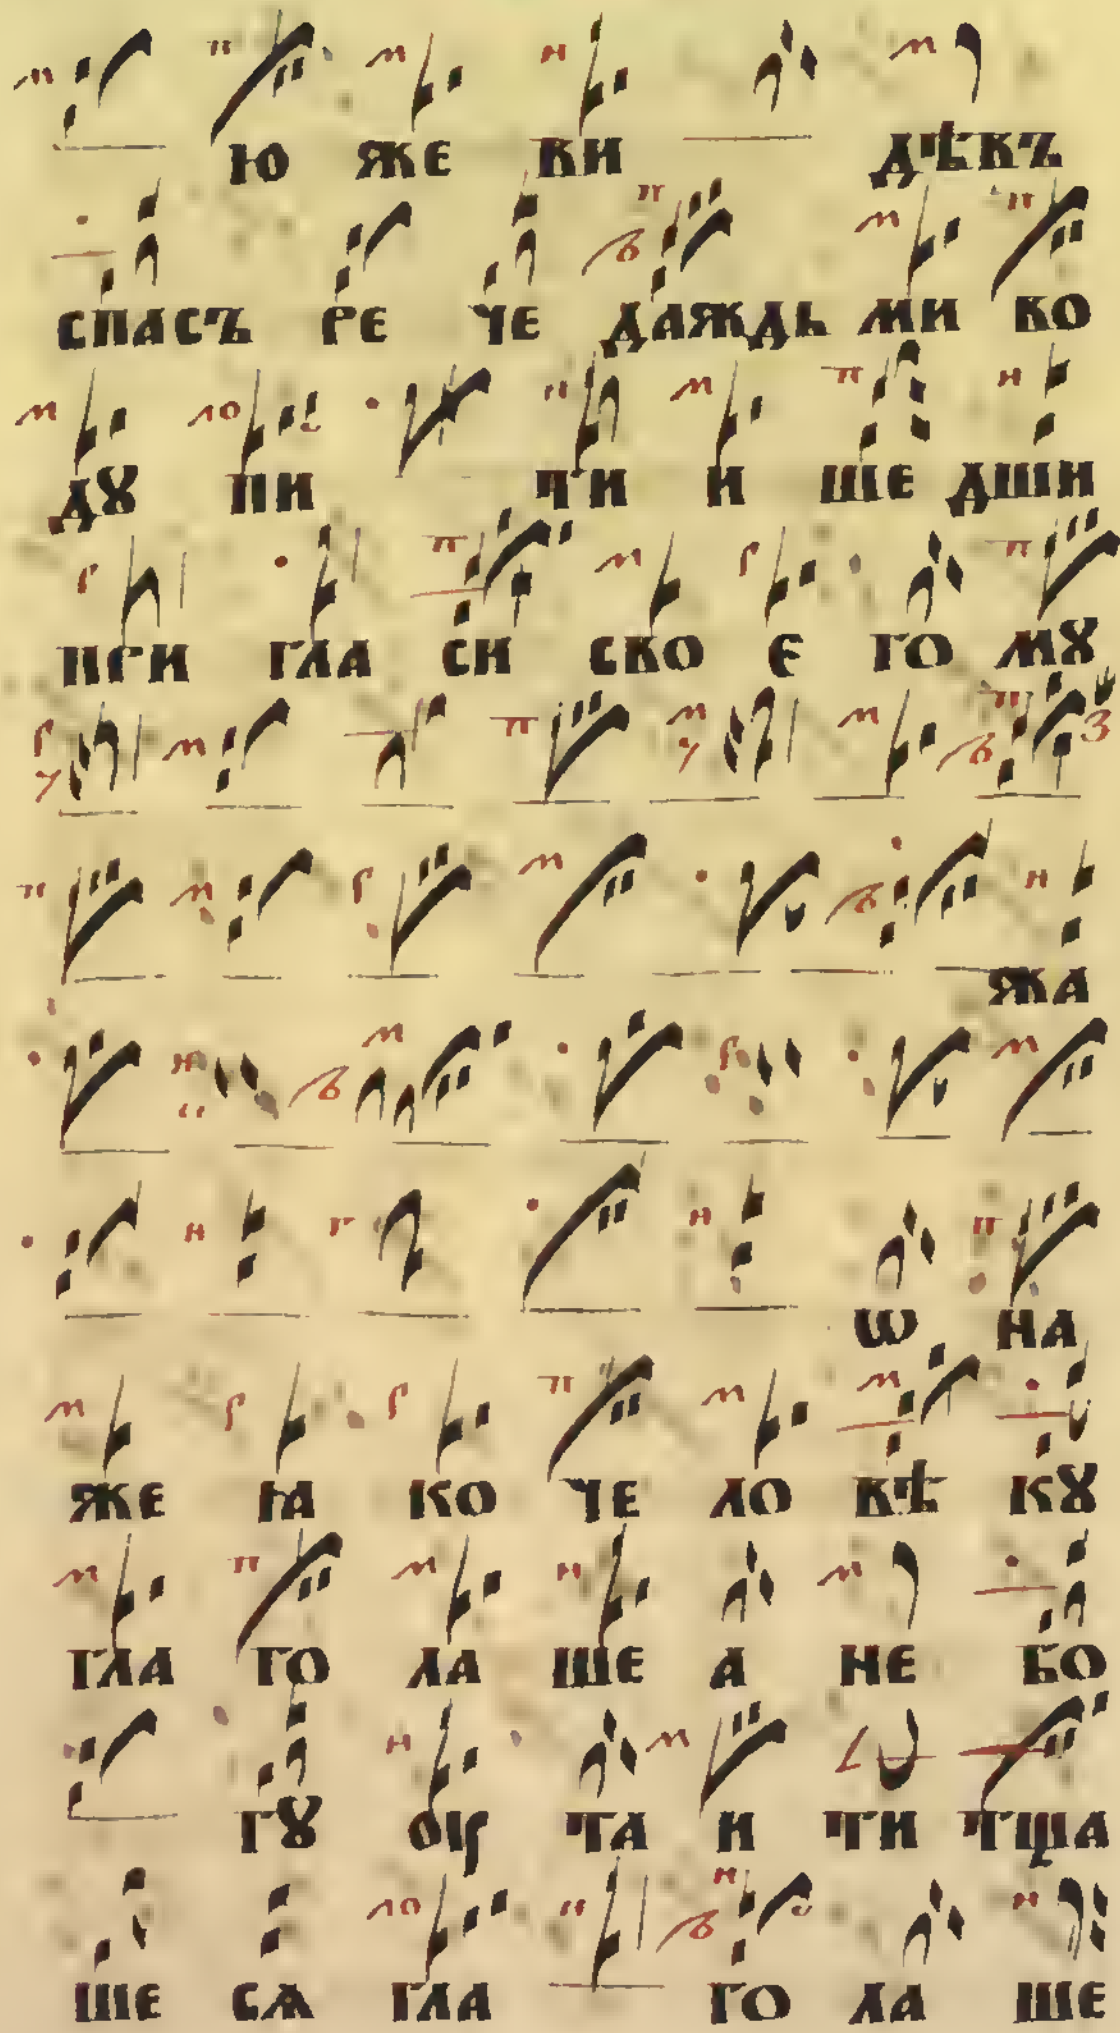 Ю ЖЕ ВИ ДѢВЪ
СПАСЪ РЕ ЧЕ ДАЖДЬ МИ ВО
ДУ ПИ ТИ И ШЕ ДШИ
ПРИ ГЛА СИ СВО Е ГО МУ
ЖА
Ѡ НА
ЖЕ ꙖКО ЧЕ ЛО ВѢ КУ
ГЛА ГО ЛА ШЕ А НЕ БО
ГУ ОУ ТА И ТИ ТЩА
ШЕ СѦ ГЛА ГО ЛА ШЕ